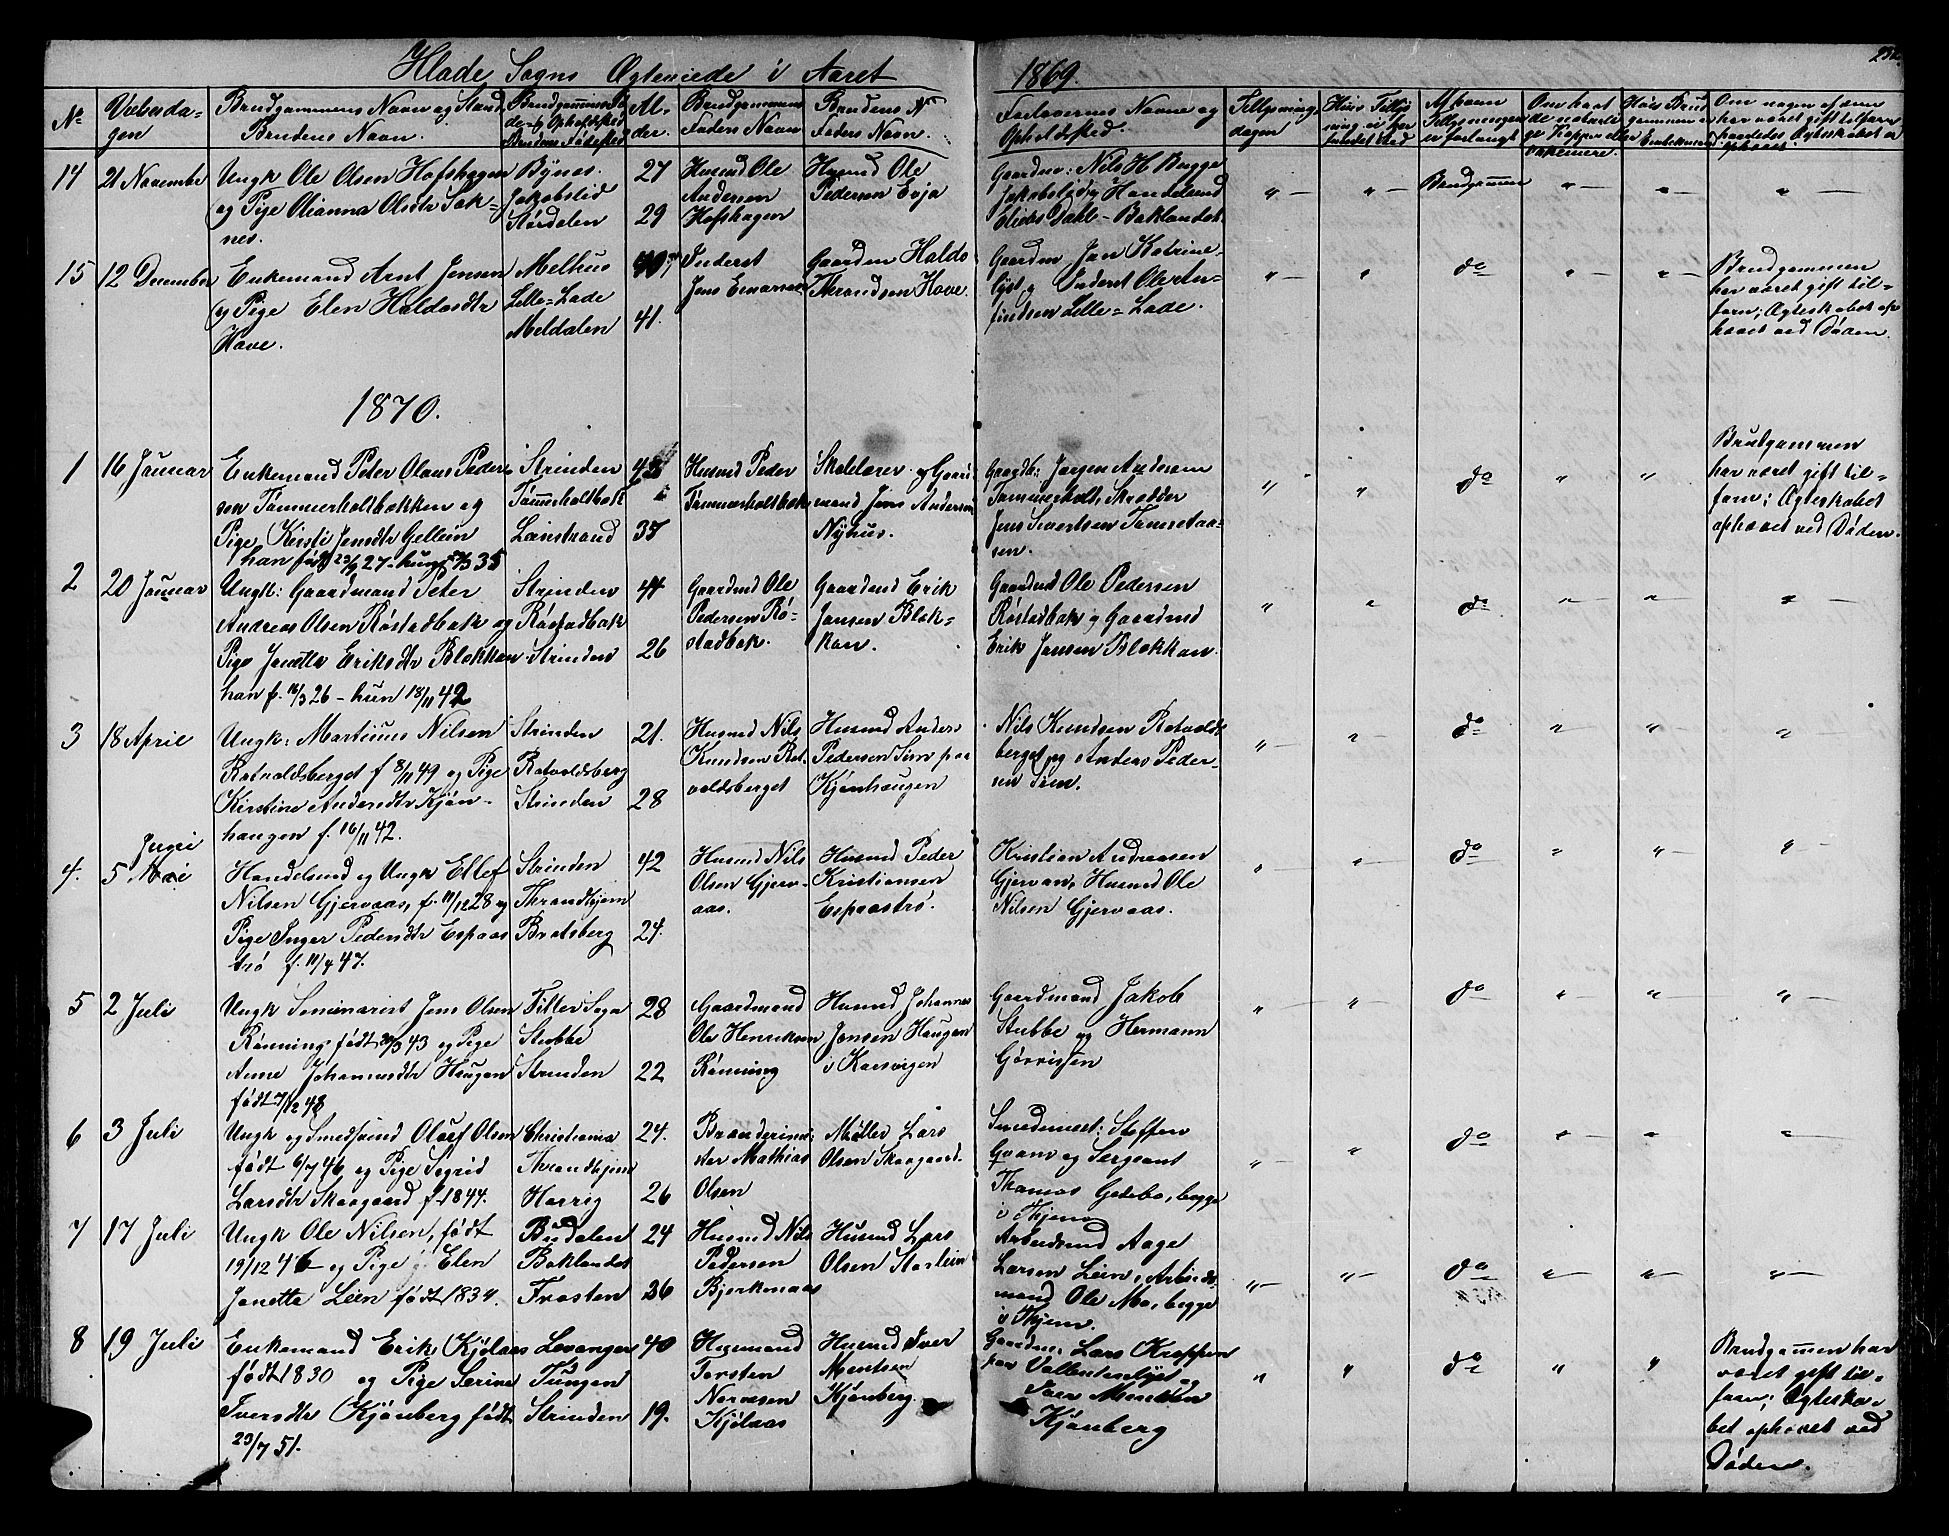 Hlade Sogns Ægteviede i Aaret 1869.
232
No
Vielsesda-
gen
Brudgommens Navn og Stand
Brudens Navn.
Al-
der.
Brudgommens
Faders Navn
Brudens
Faders Navn.
Forlovernes Navne og
Opholdssted.
Tillysnings
dagen
Om nogen af dem
har været gift tilforn
14
21 November
Ungk Ole Olsen Hofshagen
og Pige Olianna Olsdtr Sak-
nes.
Bynes.
Jakobslid
Stördalen
27
29
Husmd Ole
Andersen
Hofshagen
Husmd Ole
Pedersen Evja
Gaardm: Nils H Bugge
Jakobslid og Handelsmd
Dahl - Baklandet.
Brudgommen
15
12 December
Enkemand Arnt Jensen
og Pige Elen Haldosdtr
Have.
Melhus
Lille-Lade
Meldalen
41.
Inderst
Jens
Gaardm Haldo
Thrandsen Have.
Gaardm Jan Katrine-
lyst og Inderst Ole Arn-
findsen Lille-Lade.
do
Brudgommen
har været gift til-
forn; Ægteskabet op
hævet ved Døden.
1870.
1
16 Januar
Enkemand Peter Olaus Peder-
sen Tømmerholtbakken og
Pige Kirsti Jensdtr Gellein
han født 23/9 27 - hun 35
Strinden
Tømmerholtbak
Leinstrand
42
35
Husmd Peder
Tømmerholtbak
Skolelærer og Gaard
mand Jens Andersen
Nyhus.
Gaardb: Jørgen Andersen
Tømmerholt, Skrædder
Jens Sivertsen
sen.
do
Brudgommen
har været gift til-
forn; Ægteskabet
ophævet ved Døden.
2
20 Januar
Ungk: Gaardmand Peter
Andreas Olsen Røstadbak og
Pige Janette Eriksdtr Blekkan
han f. 16/3 26 - hun 18/11 42
Strinden
Røstadbak
Strinden
44
26
Gaardmd Ole
Pedersen Rø-
stadbak.
Gaardmd Erik
Jansen Blek-
kan.
Gaardmd Ole Pedersen
Røstadbak og Gaardmd
Erik Jansen Blekkan.
do
3
18 April
Ungk: Martinus Nilsen
Ratvoldsberget f 8/11 49 og Pige
Kirstine Andersdtr Kjøn-
haugen f. 16/11 42.
Strinden
Ratvoldsberg
Strinden
21.
28
Husmd Nils
Knudsen Rat-
voldsberget
Husmd Anders
Pedersen Sim paa
Kjønhaugen
Nils Knudsen Ratvolds
berget og Anders Peder-
sen Sim.
do
4.
5 Mai
Juni
Handelsmd og Ungk Ellef
Nilsen Gjervaas, f. 11/12 28 og
Pige Inger Pedersdtr Espaas
trø f. 11/4 47.
Strinden
Throndhjem
Bratsberg
42
24.
Husmd Nils
Olsen Gjerv-
aas.
Husmd Peder
Kristiansen
Espaastrø.
Kristian Andreasen
Gjervan, Husmd Ole
Nilsen Gjervaas.
do
5
2 Juli
Ungk Seminarist Jens Olsen
Rønning født 20/3 43 og Pige
Anne Johannesdtr Haugen
født 7/12 48
Tiller Sogn
Stubbe
Strinden
28
22
Gaardmand
Ole Henriksen
Rønning
Husmd Johannes
Jensen Haugen
i Korsvigen
Gaardmand Jakob
Stubbe og Hermann
Gørrissen
do
6
3 Juli
Ungk og Smedsvend Oluf Olsen
født 6/7 46 og Pige Sigrid
Larsdtr Skaagaard f. 1844.
Christiania
Throndhjem
Horrig
24.
26
Mathias
Olsen
Møller Lars
Olsen Skaagaard.
Smedmest: Steffen
Qvam og Sergeant
Thomas Gedebo, begge
i Thjem
do
7
17 Juli
Ungk Ole Nilsen, født
19/12 46 og Pige Elen
Janetta Lein født 1834.
Budalen
Baklandet
Frosten
24
36
Husmd Nils
Pedersen
Bjerkmaas
Husmd Lars
Olsen Storlein
Arbeidsmd Aage
Larsen Lein, Arbeids-
mand Ole Mo, begge
i Thjem.
do
8
19 Juli
Enkemand Erik Kjølaas
født 1830 og Pige Serine
Iversdtr Kjønberg født
23/7 51.
Levanger
Tungen
Strinden
40
19.
Husmand
Torsten
Kjølaas
Husmd Iver
Mentsen
Kjønberg.
Gaardm: Lars Kroppen
paa Vallentinlyst og
Iver Mentsen
Kjønberg
do
Brudgommen har
været gift til-
forn; Ægteska-
bet ophævet ved
Døden.